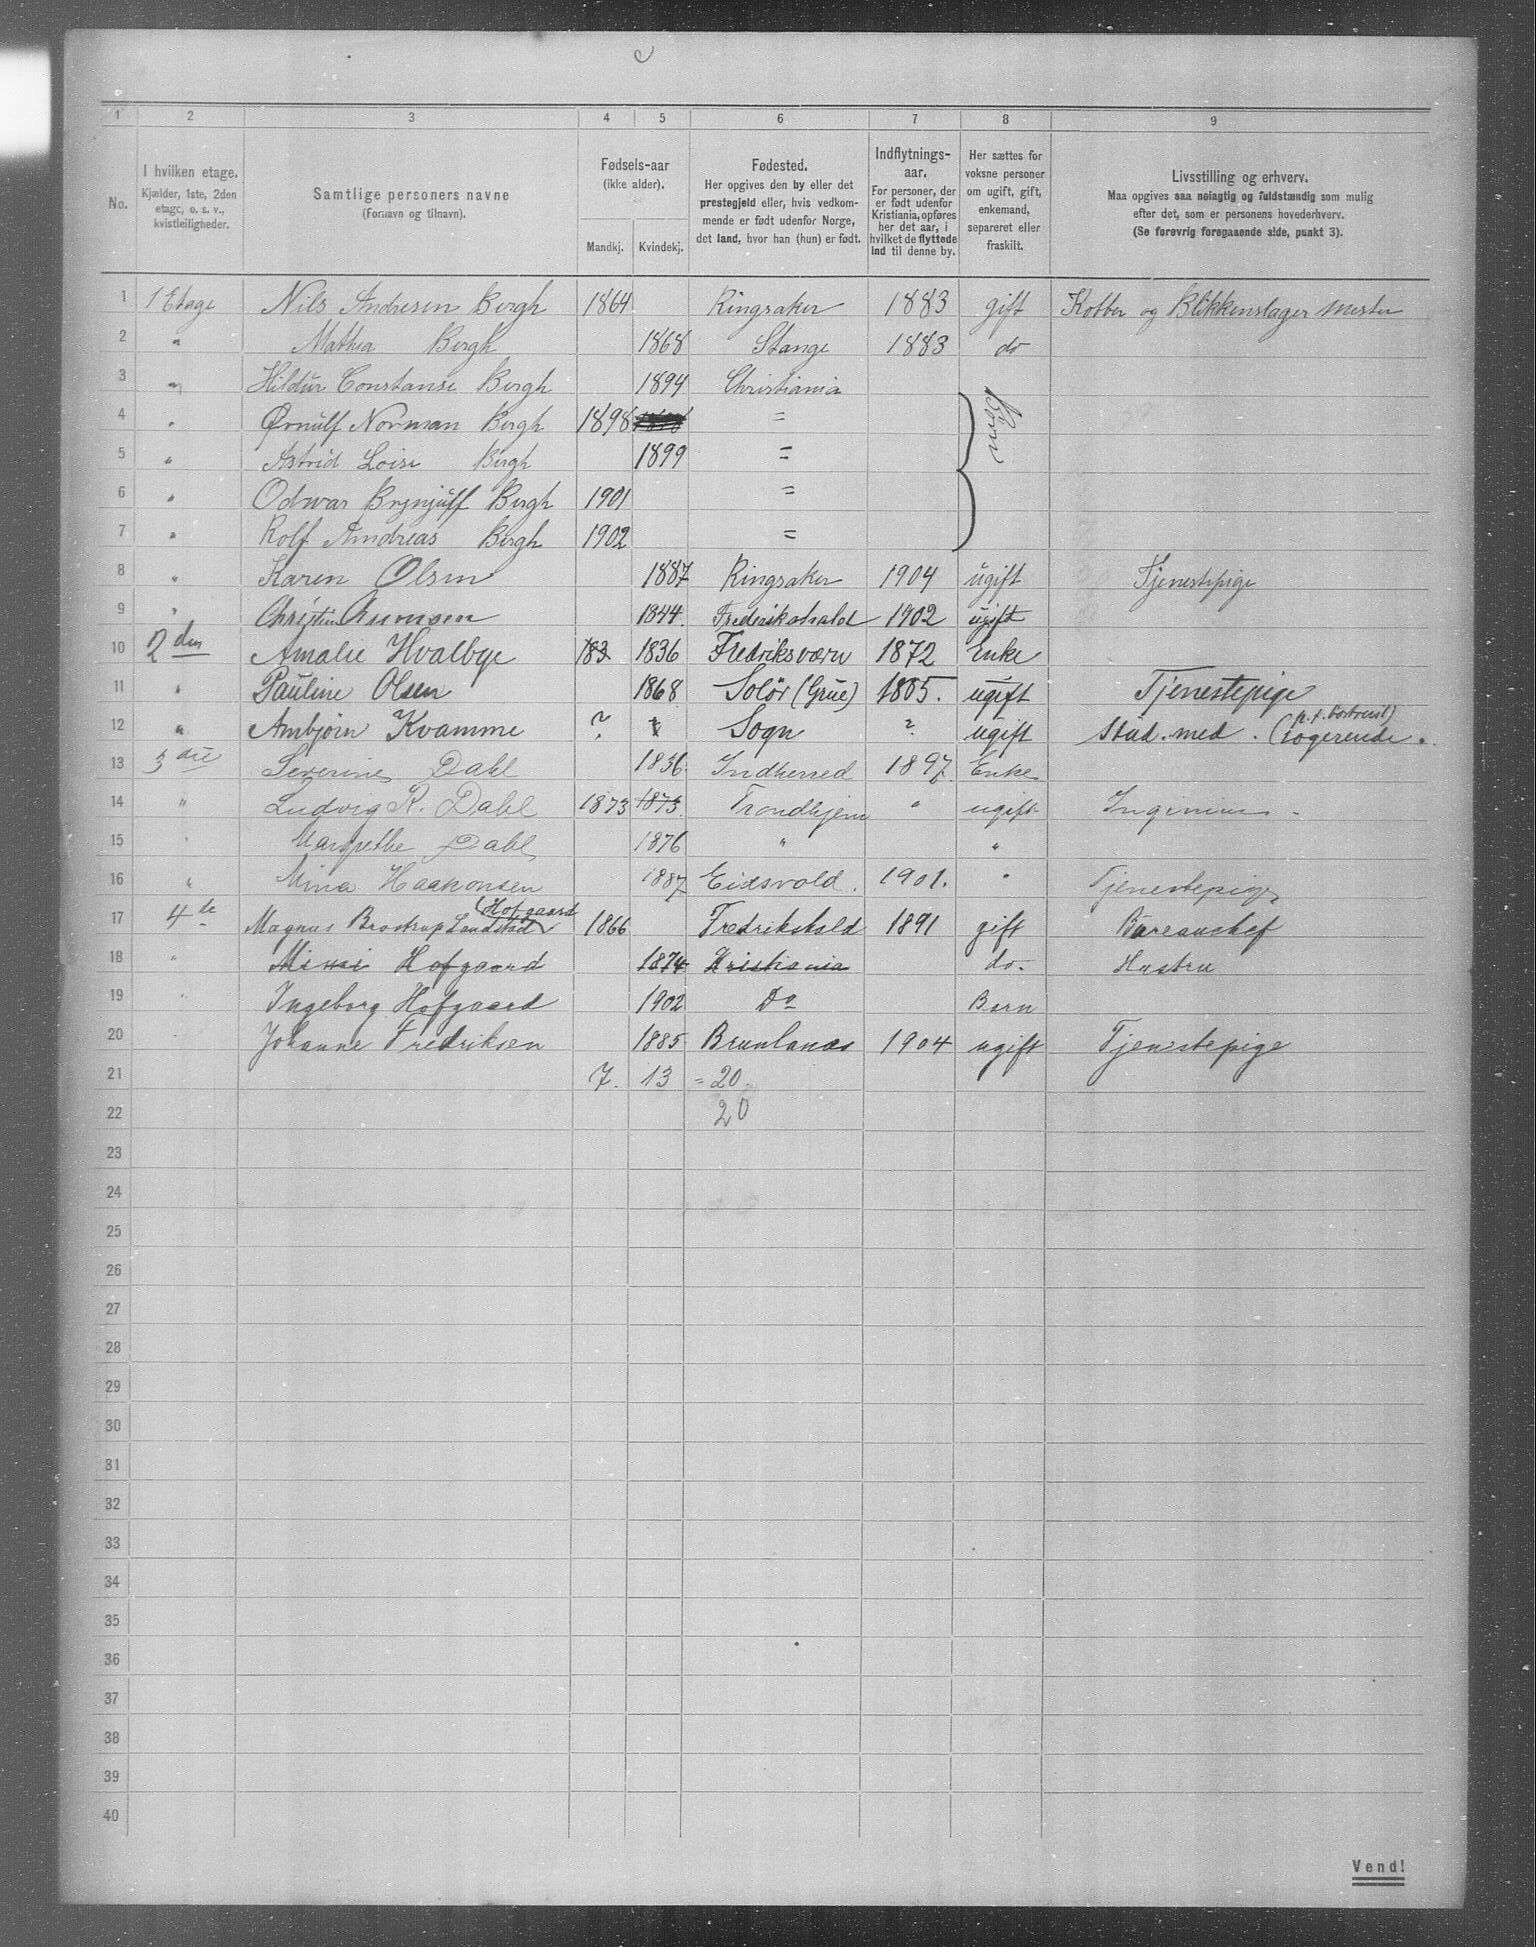 1 2 3 4 5 6 7 8 9
No.
I hvilken etage.
Kjælder, 1ste, 2den
etage, o. s. v.,
kvistleiligheder.
Samtlige personers navne
(Fornavn og tilnavn).
Fødsels-aar
(ikke alder).
Mandkj. Kvindekj.
Fødested.
Her opgives den by eller det
prestegjeld eller, hvis vedkom-
mende er født udenfor Norge,
det land, hvor han (hun) er født.
Indflytnings-
aar.
For personer, der
er født udenfor
Kristiania, opføres
her det aar, i
hvilket de flyttede
ind til denne by.
Her sættes for
voksne personer
om ugift, gift,
enkemand,
separeret eller
fraskilt.
Livsstilling og erhverv.
Maa opgives saa nøiagtig og fuldstændig som mulig
efter det, som er personens hovederhverv.
(Se forøvrig foregaaende side, punkt 3).
1 1 Etage Nils Andresen Bergh 1864 Ringsaker 1883 gift Kobber og Blikkenslager mester
2 " Mathea Bergh 1868 Stange 1883 do
3 " Hildur Constanse Bergh 1894 Christiania
4 " Ørnulf Norman Bergh 1898 = Børn
5 " Astrid Loise Bergh 1899 =
6 " Odvar Brynjulf Bergh 1901 =
7 " Rolf Andreas Bergh 1902 =
8 " Karen Olsen 1887 Ringsaker 1904 ugift Tjenestepige
9 " Christin 1844. Frederikshald 1902 ugift
10 2den Amalie Hvalbye 183 1836 Fredriksværn 1872 Enke
11 " Pauline Olsen 1868 Solør (Grue) 1885. ugift Tjenestepige
12 " Ambjørn Kvamme ? Sogn ? ugift Stud. med. (Logerende p. t. bortreist).
13 3die Severine Dahl 1836. Indherred 1897. Enke
14 " Ludvig R. Dahl 1873 1873. Trondhjem " ugift Inginiør
15 " Margethe Dahl 1876 " "
16 " Mina Haakonsen 1887 Eidsvold. 1901. " Tjenestepige
17 4de Magnus Brostrup Landstad (Hofgaard 1866 Fredrikshald 1891 gift Bureauchef
18 " Mimi Hofgaard 1874 Kristiania do. Hustru
19 " Ingeborg Hofgaard 1902 Do Barn
20 " Johanne Fredriksen 1885 Brunlanæs 1904 ugift Tjenestepige
21 7. 13 = 20.
22 20
23
24
25
26
27
28
29
30
31
32
33
34
35
36
37
38
39
40
Vend!